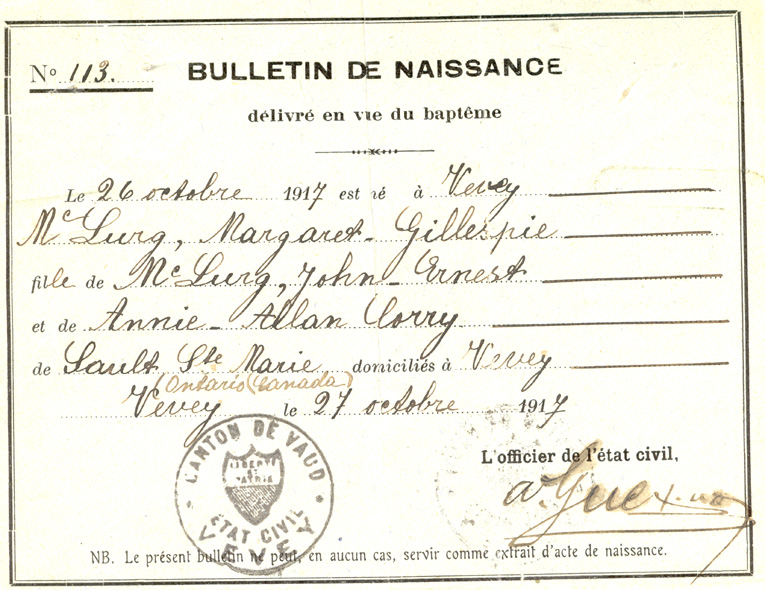 No 113.
BULLETIN DE NAISSANCE
délivré en vue du baptême
Le 26 octobre 1917 est né à Vevey
Mc Lurg, Margaret-Gillespie
fille de Mc Lurg, John-Ernest
et de Annie-Allan Corry
de Sault Ste Marie domiciliés à Vevey
(Ontario (Canada)
Vevey le 27 octobre 1917
CANTON DE VAUD
LIBERTÉ
ET
PATRIE
ÉTAT CIVIL
VEVEY
L'officier de l'état civil,
NB. Le présent bulletin ne peut, en aucun cas, servir comme extrait d'acte de naissance.